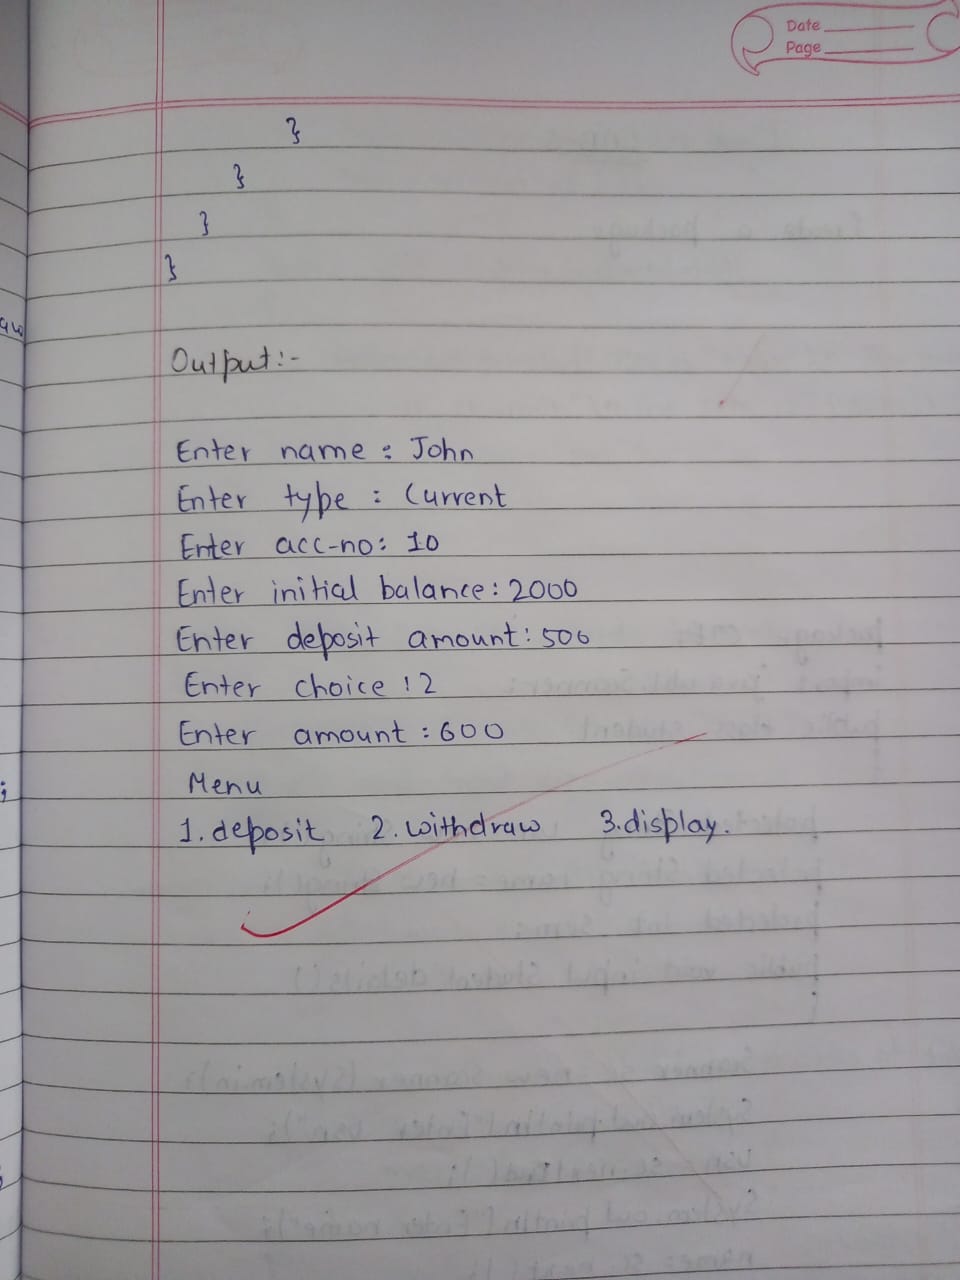 Date
Page
}
}
}
}
Output:-
Enter name : John
Enter type : Current
Enter acc-no: 10
Enter initial balance: 2000
Enter deposit amount: 500
Enter choice : 2
Enter amount : 600
Menu
1. deposit 2. withdraw 3. display.